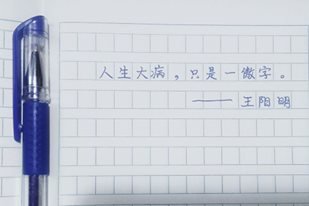 人生大病，只是一傲字。
——王阳明